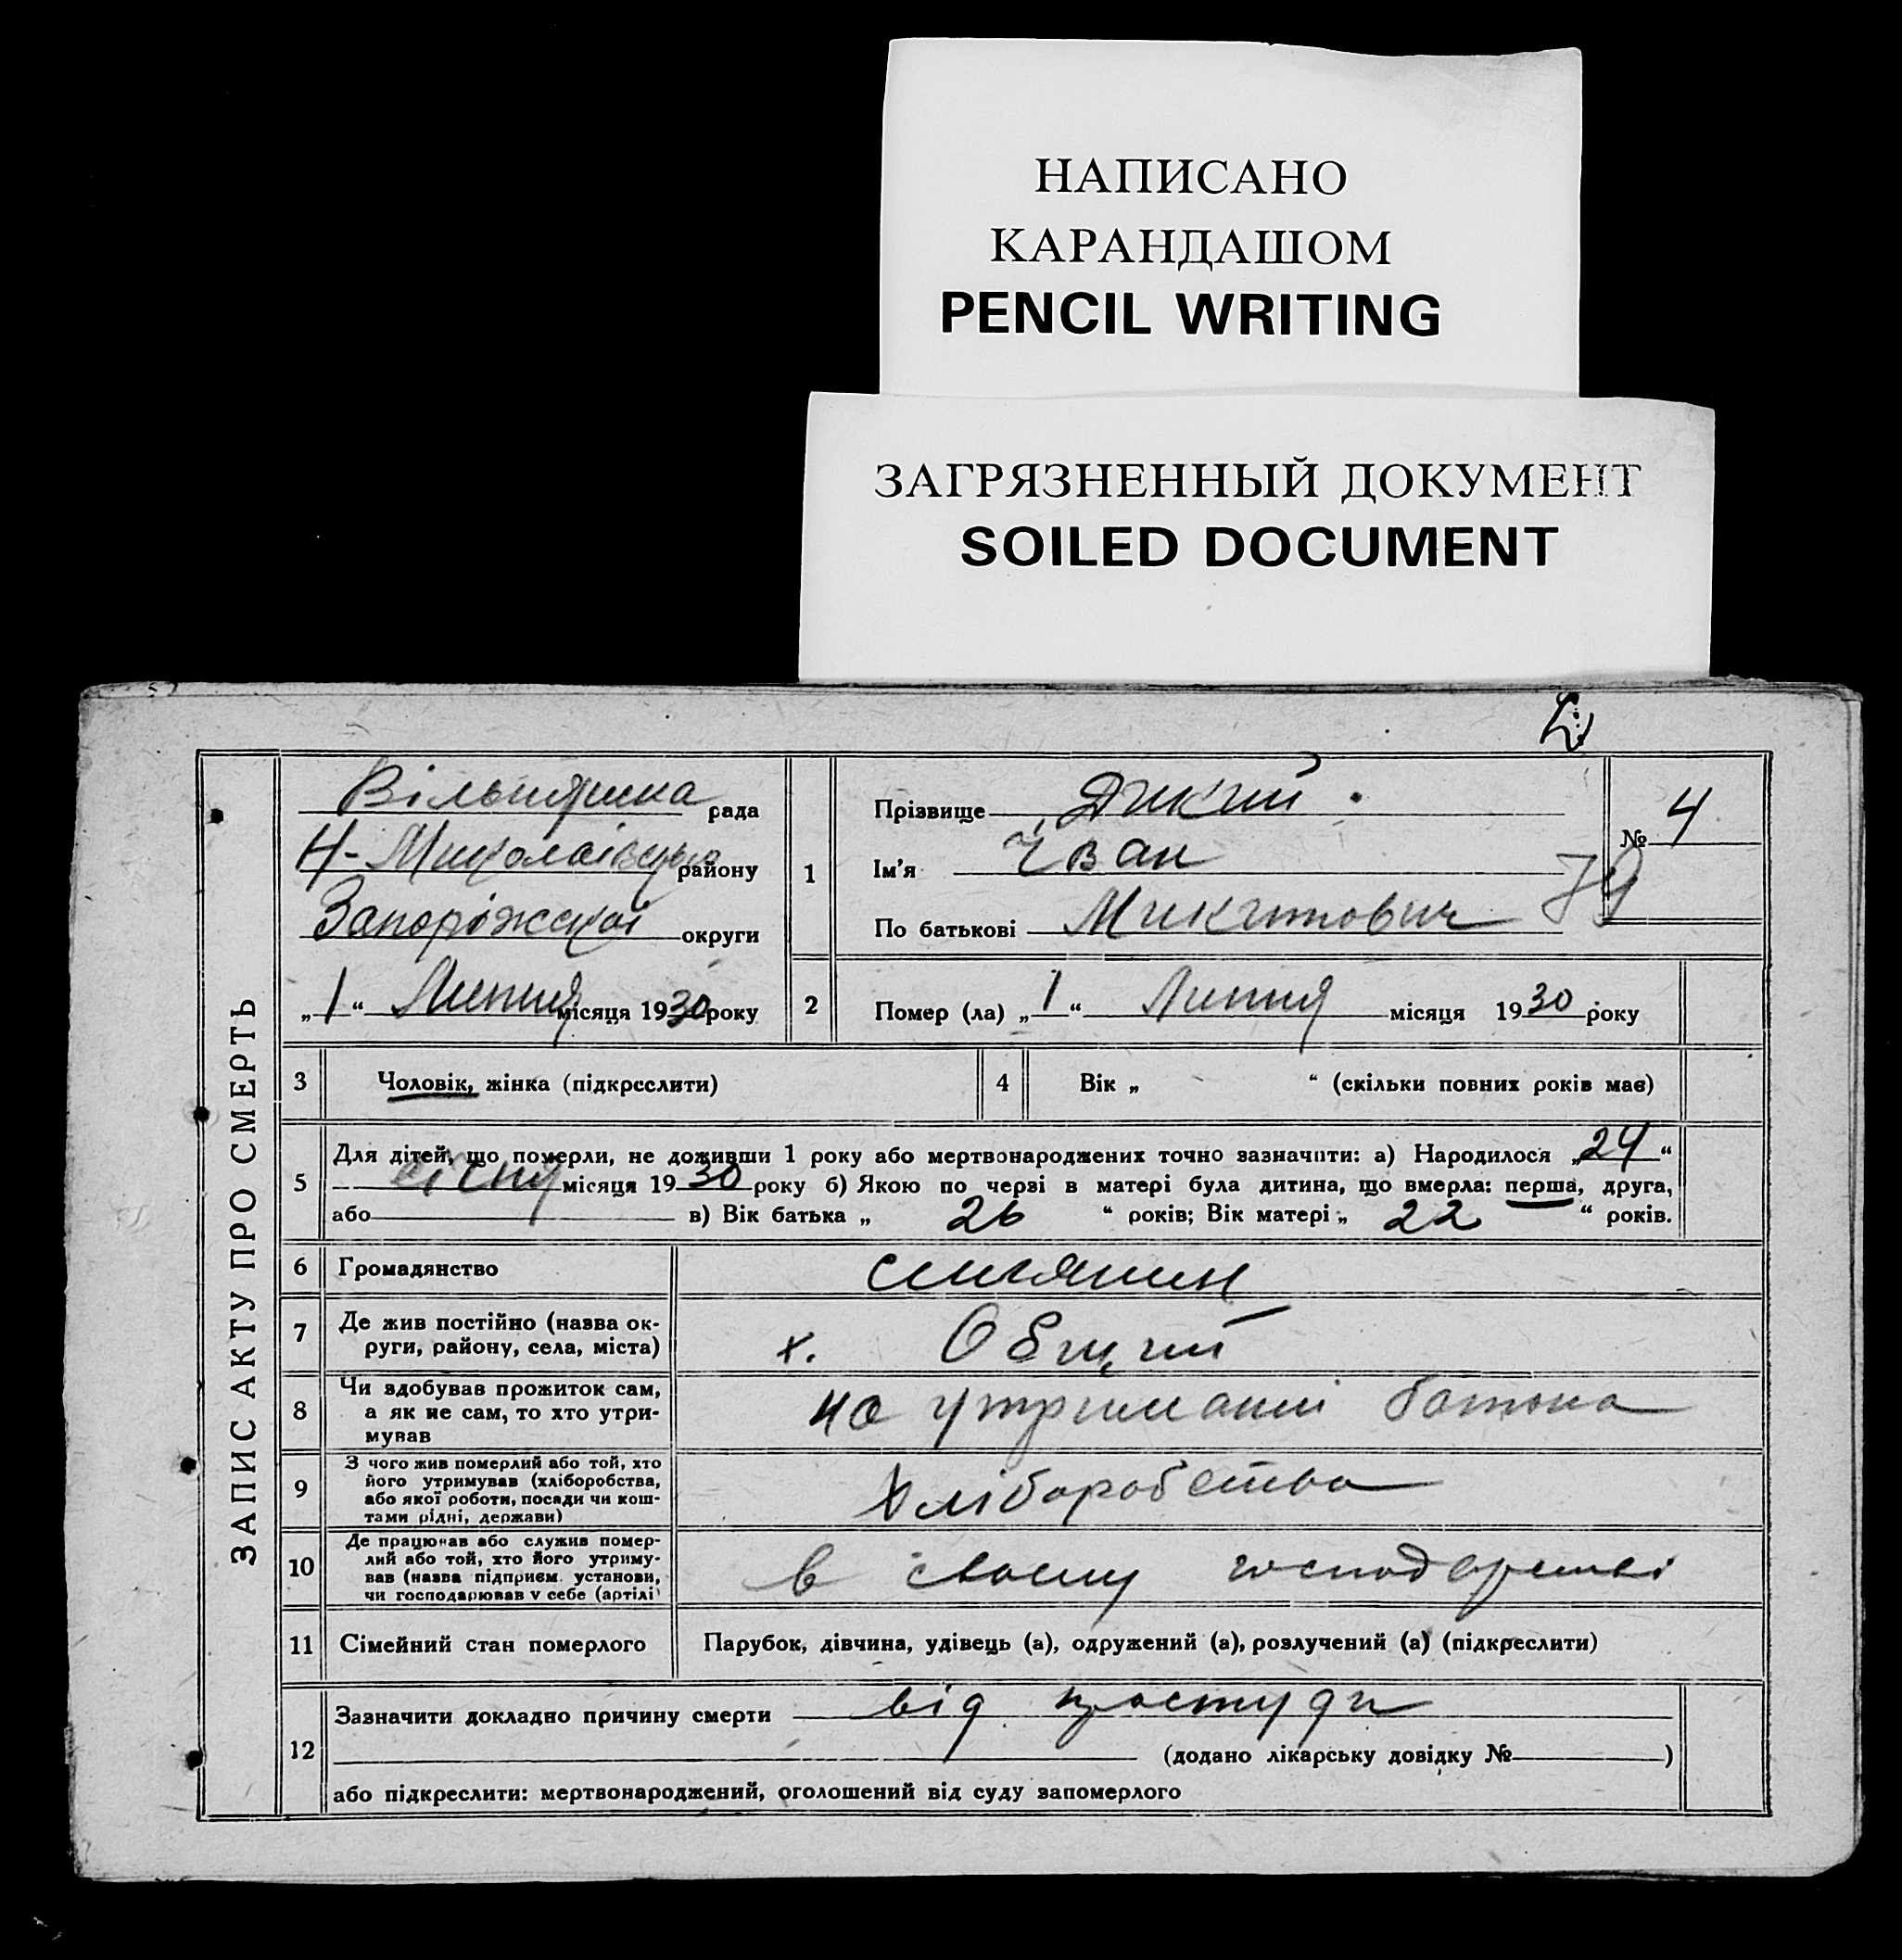 НАПИСАНО
КАРАНДАШОМ
PENCIL WRITING
ЗАГРЯЗНЕННЫЙ ДОКУМЕНТ
SOILED DOCUMENT
ЗАПИС АКТУ ПРО СМЕРТЬ
рада
Н-Миколаївського району
Запоріжської округи
„1“ Липня місяця 1930 року
1
Прізвище Дикий
Ім'я Іван
По батькові Микитович
№ 4
79
2
Помер (ла) „1“ Липня місяця 1930 року
3
Чоловік, жінка (підкреслити)
4
Вік „ “ (скільки повних років має)
5
Для дітей, що померли, не доживши 1 року або мертвонароджених точно зазначити: а) Народилося „24“
січня місяця 1930 року б) Якою по черзі в матері була дитина, що вмерла: перша, друга,
або в) Вік батька „ 26 “ років; Вік матері „ 22 “ років.
6
Громадянство
селянин
7
Де жив постійно (назва ок-
руги, району, села, міста)
х. Общий
8
Чи здобував прожиток сам,
а як не сам, то хто утри-
мував
на утриманні батька
9
З чого жив померлий або той, хто
його утримував (хліборобства,
або якої роботи, посади чи кош-
тами рідні, держави)
Хліборобства
10
Де працював або служив помер-
лий або той, хто його утриму-
вав (назва підприєм. установи,
чи господарював у себе (артілі)
в своєму господарстві
11
Сімейний стан померлого
Парубок, дівчина, удівець (а), одружений (а), розлучений (а) (підкреслити)
12
Зазначити докладно причину смерти від простуди
(додано лікарську довідку № )
або підкреслити: мертвонароджений, оголошений від суду запомерлого